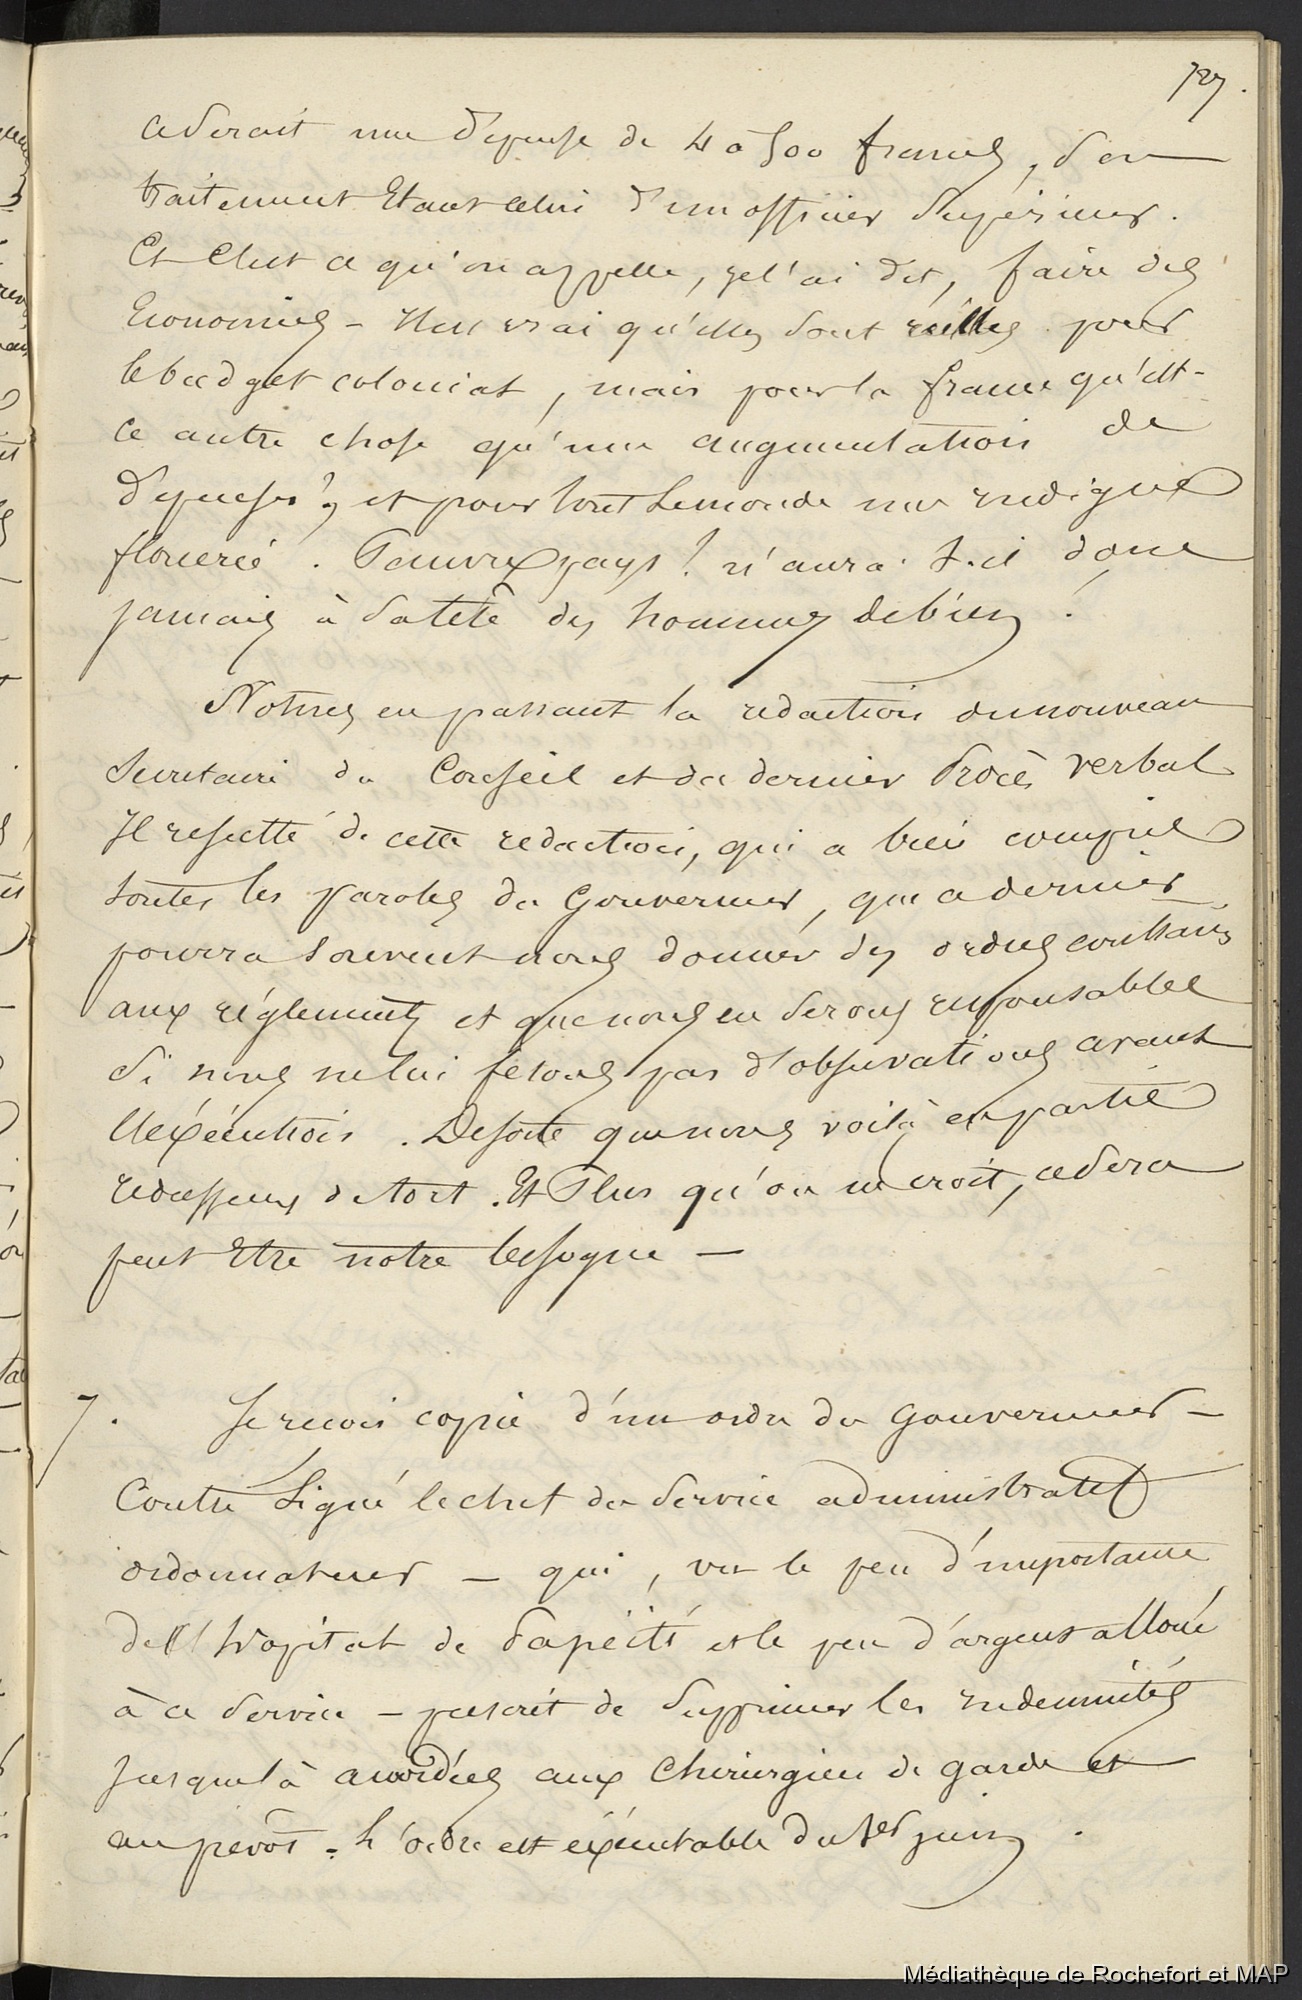 727.
ce serait une dépense de 4 à 500 francs, son
traitement étant celui d'un officier supérieur.
Et c'est ce qu'on appelle, je l'ai dit, faire des
Economies – Il est vrai qu'elles sont réelles pour
le budget colonial, mais pour la france qu'est-
ce autre chose qu'une augmentation de
dépenses? et pour tout le monde une indigne
flouerie. Pauvre pays! n'aura-t-il donc
jamais à sa tête des hommes de bien!
Notons en passant la rédaction du nouveau
Secrétaire du Conseil et du dernier Procès verbal
Il résulte de cette rédaction, qui a bien compris
toutes les paroles du Gouverneur, que ce dernier
pourra souvent nous donner des ordres contraires
aux règlements et que nous en serons responsables
si nous ne lui fesons pas d'observations avant
l'exécution. De sorte que nous voilà en partie
redresseurs de tort. Et Plus qu'on ne croit, ce sera
peut être notre besogne –
7. Je reçois copie d'un ordre du Gouverneur –
Contre Signé le chef du Service administratif
ordonnateur – qui, vu le peu d'importance
de l'hopital de Papéiti et le peu d'argent alloué
à ce service – prescrit de supprimer les indemnités
jusque là accordées aux chirurgien de garde et
au prévôt. L'ordre est exécutable du 1er juin.
Médiathèque de Rochefort et MAP